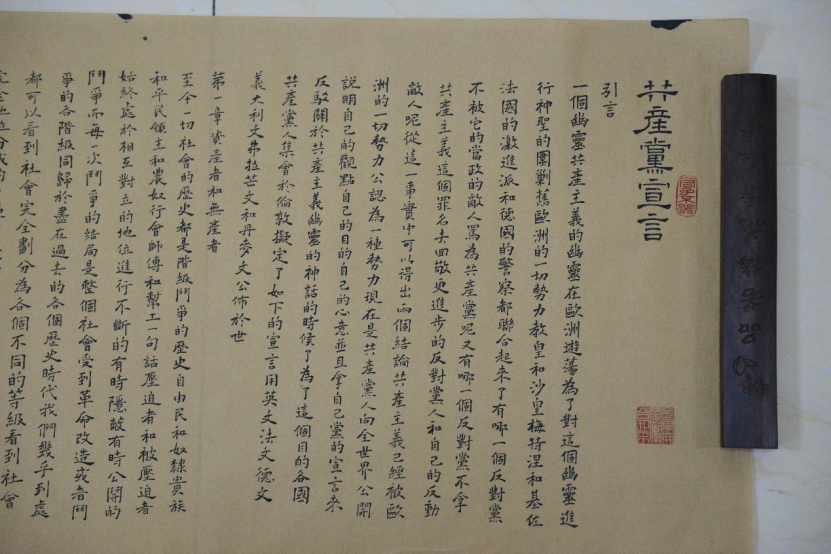 共產黨宣言
引言
一個幽靈共產主義的幽靈在歐洲遊蕩為了對這個幽靈進
行神聖的圍剿舊歐洲的一切勢力教皇和沙皇梅特涅和基佐
法國的激進派和德國的警察都聯合起來了有哪一個反對黨
不被它的當政的敵人罵為共產黨呢又有哪一個反對黨不拿
共產主義這個罪名去回敬更進步的反對黨人和自己的反動
敵人呢從這一事實中可以得出兩個結論共產主義已經被歐
洲的一切勢力公認為一種勢力現在是共產黨人向全世界公開
說明自己的觀點自己的目的自己的心意並且拿自己黨的宣言來
反駁關於共產主義幽靈的神話的時候了為了這個目的各國
共產黨人集會於倫敦擬定了如下的宣言用英文法文德文
義大利文弗拉芒文和丹麥文公佈於世
第一章資產者和無產者
至今一切社會的歷史都是階級鬥爭的歷史自由民和奴隸貴族
和平民領主和農奴行會師傅和幫工一句話壓迫者和被壓迫者
始終處於相互對立的地位進行不斷的有時隱蔽有時公開的
鬥爭而每一次鬥爭的結局是整個社會受到革命改造或者鬥
爭的各階級同歸於盡在過去的各個歷史時代我們幾乎到處
都可以看到社會完全劃分為各個不同的等級看到社會